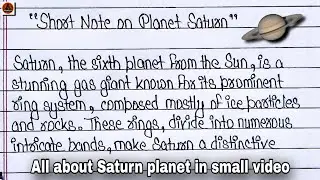 "Short Note on Planet Saturn"
Saturn, the sixth planet from the Sun, is a
stunning gas giant known for its prominent
ring system, composed mostly of ice particles
and rocks. These rings, divide into numerous
intricate bands, make Saturn a distinctive
All about Saturn planet in small video